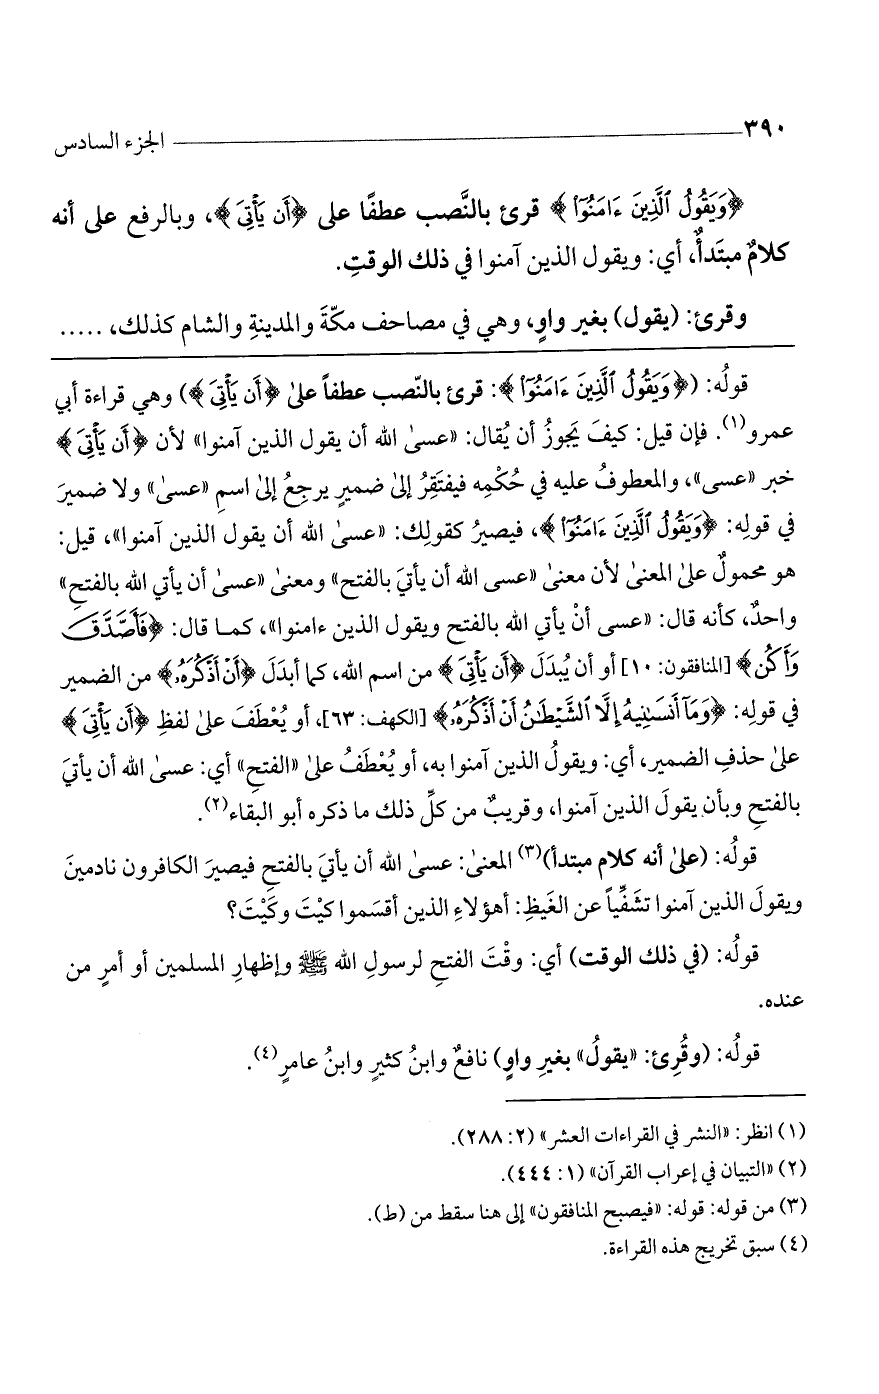 ٣٩٠ الجزء السادس
﴿وَيَقُولُ ٱلَّذِينَ ءَامَنُوٓا۟﴾ قرئ بالنَّصب عطفًا على ﴿أَن يَأْتِىَ﴾، وبالرفع على أنه
كلامٌ مبتَدأٌ، أي: ويقول الذين آمنوا في ذلك الوقتِ.
وقرئ: (يقول) بغير واوٍ، وهي في مصاحف مكّةَ والمدينةِ والشام كذلك، .....
قولُه: (﴿وَيَقُولُ ٱلَّذِينَ ءَامَنُوٓا۟﴾: قرئ بالنّصب عطفاً علىٰ ﴿أَن يَأْتِىَ﴾) وهي قراءة أبي
عمرو(١). فإن قيل: كيفَ يَجوزُ أن يُقال: «عسىٰ الله أن يقول الذين آمنوا» لأن ﴿أَن يَأْتِىَ﴾
خبر «عسى»، والمعطوفُ عليه في حُكْمِه فيفتَقِرُ إلىٰ ضميرٍ يرجعُ إلىٰ اسمِ «عسىٰ» ولا ضميرَ
في قولِه: ﴿وَيَقُولُ ٱلَّذِينَ ءَامَنُوٓا۟﴾، فيصيرُ كقولِك: «عسىٰ الله أن يقول الذين آمنوا»، قيل:
هو محمولٌ علىٰ المعنىٰ لأن معنىٰ «عسى الله أن يأتيَ بالفتح» ومعنىٰ «عسىٰ أن يأتي الله بالفتحِ»
واحدٌ، كأنه قال: «عسى أنْ يأتي الله بالفتح ويقول الذين ءامنوا»، كما قال: ﴿فَأَصَّدَّقَ
وَأَكُن﴾ [المنافقون: ١٠] أو أن يُبدَلَ ﴿أَن يَأْتِىَ﴾ من اسم الله، كما أبدَلَ ﴿أَنْ أَذْكُرَهُۥ﴾ من الضمير
في قولِه: ﴿وَمَآ أَنسَىٰنِيهُ إِلَّا ٱلشَّيْطَٰنُ أَنْ أَذْكُرَهُۥ﴾ [الكهف: ٦٣]، أو يُعْطَفَ علىٰ لفظِ ﴿أَن يَأْتِىَ﴾
علىٰ حذفِ الضمير، أي: ويقولُ الذين آمنوا به، أو يُعْطَفُ علىٰ «الفتحِ» أي: عسىٰ الله أن يأتيَ
بالفتحِ وبأن يقولَ الذين آمنوا، وقريبٌ من كلِّ ذلك ما ذكره أبو البقاء(٢).
قولُه: (علىٰ أنه كلام مبتدأ)(٣) المعنىٰ: عسىٰ الله أن يأتيَ بالفتحِ فيصيرَ الكافرون نادمينَ
ويقولَ الذين آمنوا تشَفِّياً عن الغَيظِ: أهؤلاءِ الذين أقسَموا كيْتَ وكَيْتَ؟
قولُه: (في ذلك الوقت) أي: وقْتَ الفتحِ لرسولِ الله ﷺ وإظهارِ المسلمين أو أمرٍ من
عنده.
قولُه: (وقُرِئ: «يقولُ» بغيرِ واوٍ) نافعٌ وابنُ كثيرٍ وابنُ عامرٍ(٤).
(١) انظر: «النشر في القراءات العشر» (٢: ٢٨٨).
(٢) «التبيان في إعراب القرآن» (١: ٤٤٤).
(٣) من قوله: قوله: «فيصبح المنافقون» إلى هنا سقط من (ط).
(٤) سبق تخريج هذه القراءة.